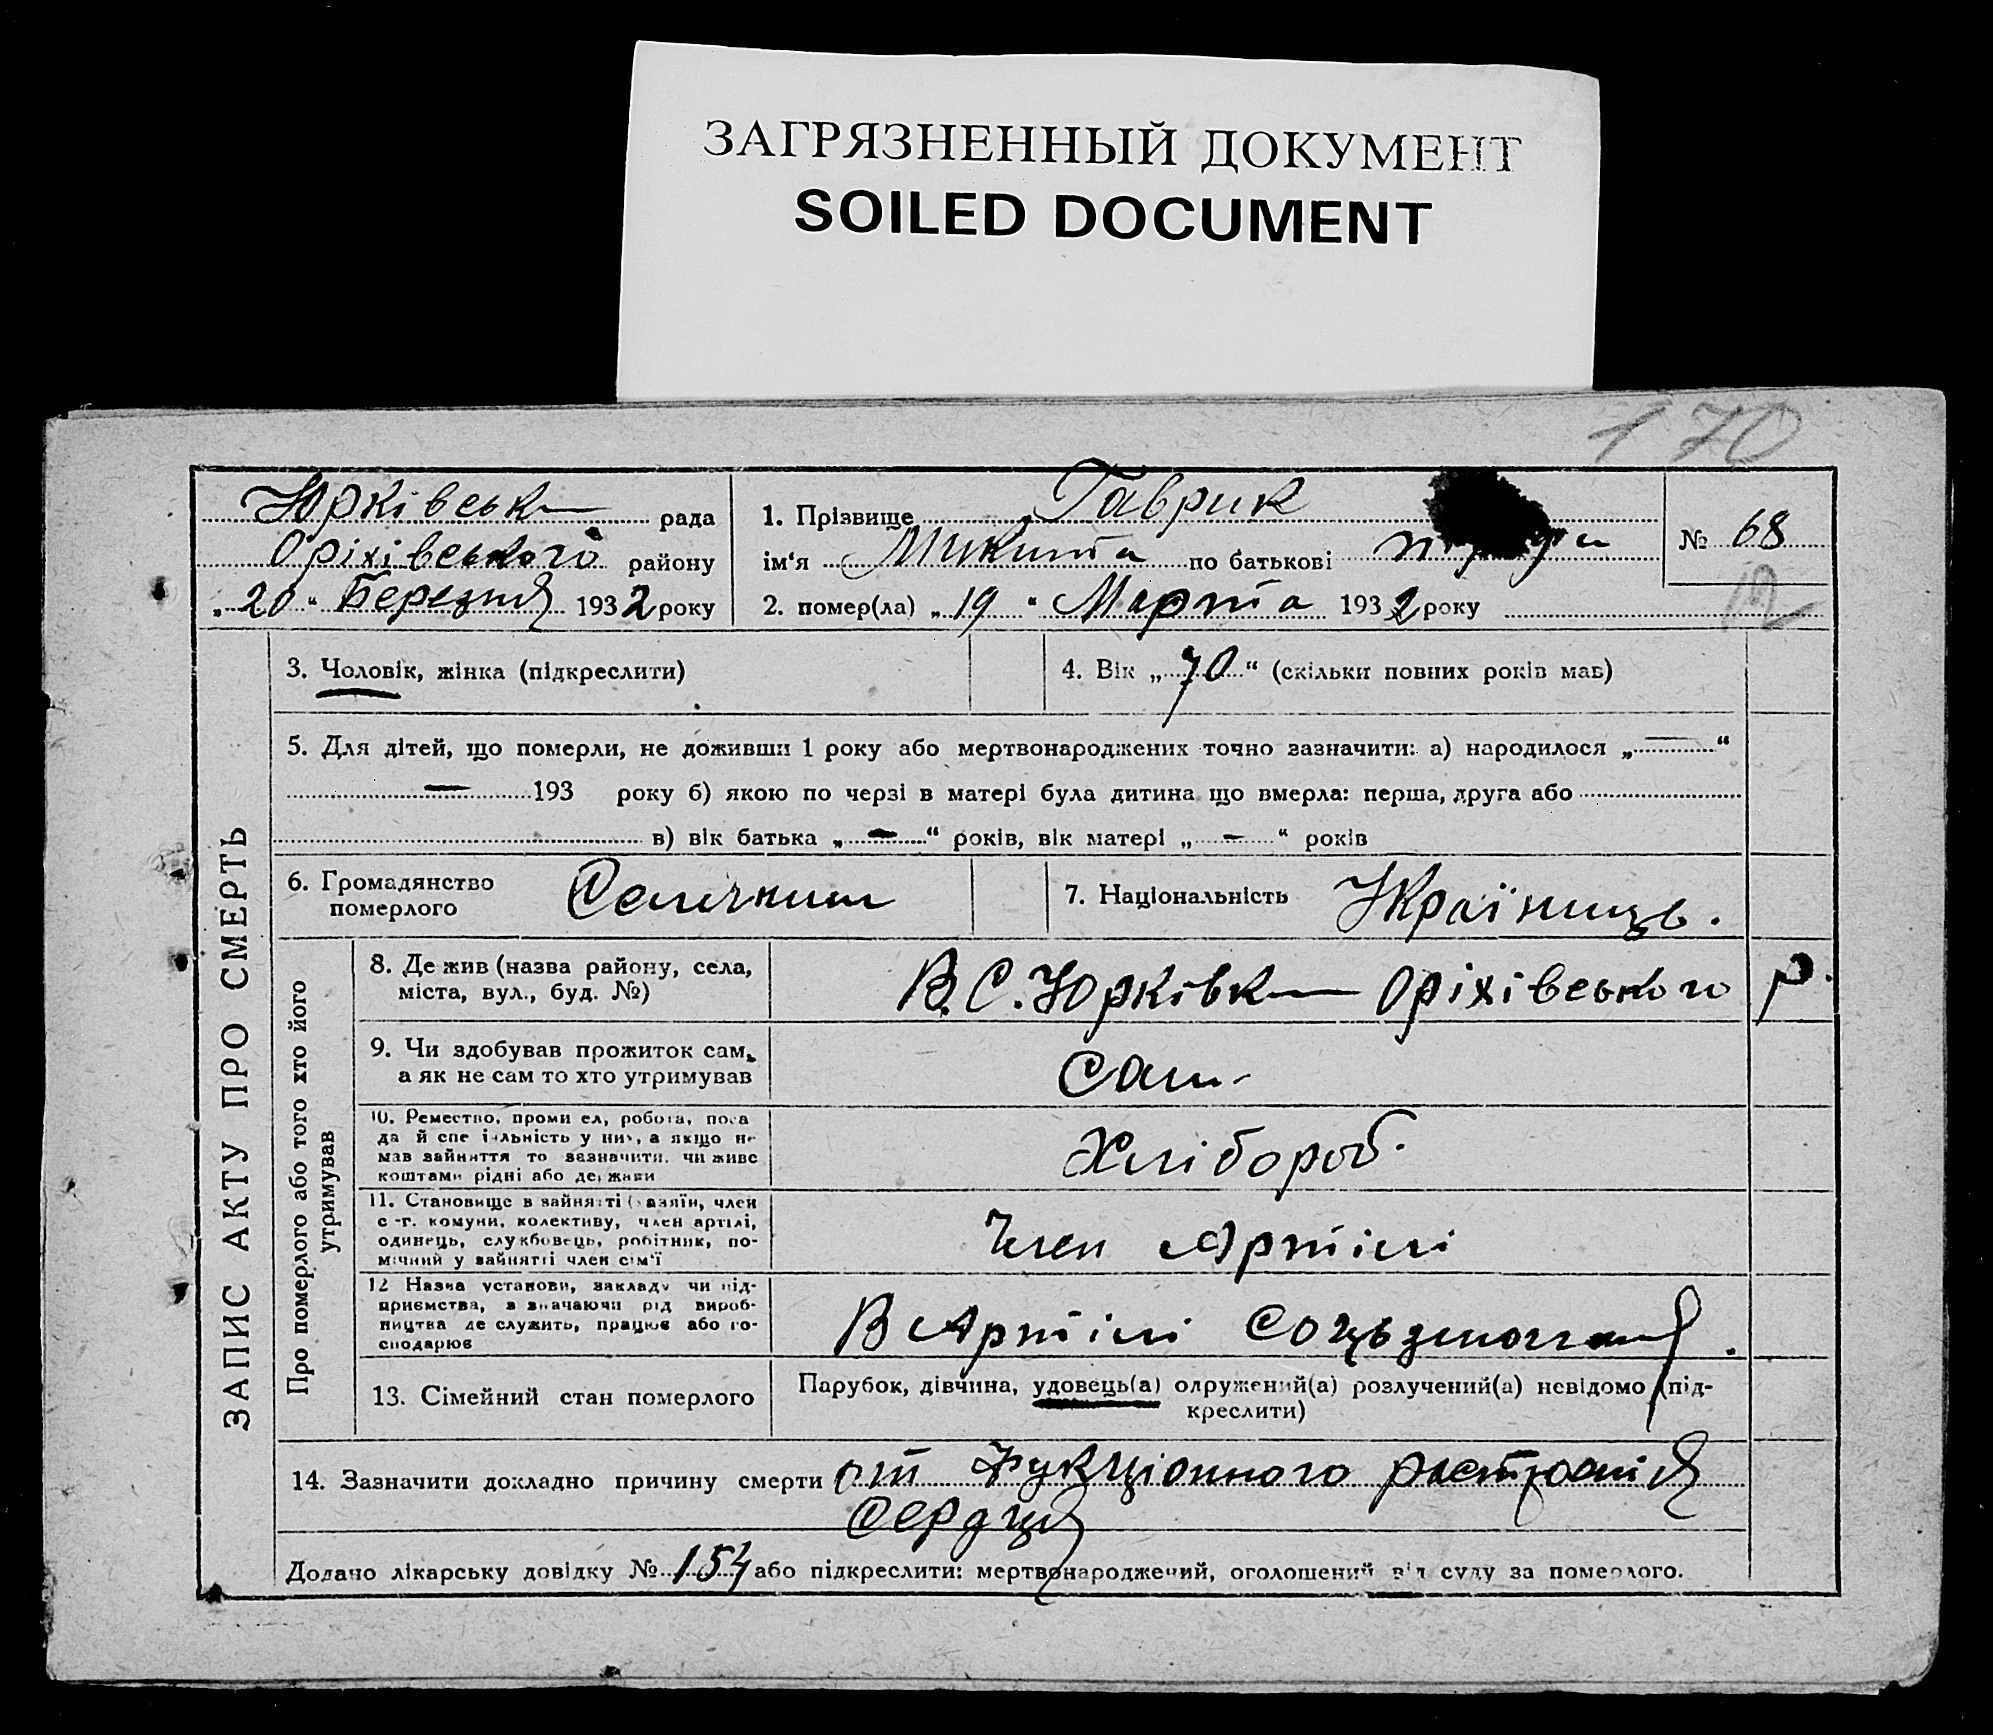 ЗАГРЯЗНЕННЫЙ ДОКУМЕНТ
SOILED DOCUMENT
170
Юрківськ рада
Оріхівського району
„20“ Березня 1932 року
1. Прізвище Гаврик
ім‘я Микита по батькові
2. помер(ла) „19“ Марта 1932 року
№ 68
ЗАПИС АКТУ ПРО СМЕРТЬ
3. Чоловік, жінка (підкреслити)
4. Вік „70“ (скільки повних років мав)
5. Для дітей, що померли, не доживши 1 року або мертвонароджених точно зазначити: а) народилося „—“
— 193 року б) якою по черзі в матері була дитина що вмерла: перша, друга або
в) вік батька „—“ років, вік матері „—“ років
6. Громадянство
померлого
Селянин
7. Національність Українець.
Про померлого або того хто його
утримував
8. Де жив (назва району, села,
міста, вул., буд. №)
В С. Юрківк Оріхівського р.
9. Чи здобував прожиток сам,
а як не сам то хто утримував
Сам
10. Ремество, промисел, робота, поса
да й спеціяльність у них, а якщо не
мав зайняття то зазначити, чи живе
коштами рідні або держави
Хлібороб.
11. Становище в зайнятті (хазяїн, член
с-г. комуни, колективу, член артілі,
одинець, службовець, робітник, по-
мічний у зайнятті член сім'ї
Член Артілі
12 Назва установи, закладу чи під-
приємства, зазначаючи рід вироб-
ництва де служить, працює або го-
сподарює
В Артілі
13. Сімейний стан померлого
Парубок, дівчина, удовець(а) одружений(а) розлучений(а) невідомо (під-
креслити)
14. Зазначити докладно причину смерти от Фукціонного растроянія
Сердця
Додано лікарську довідку № 154 або підкреслити: мертвонароджений, оголошений від суду за померлого.